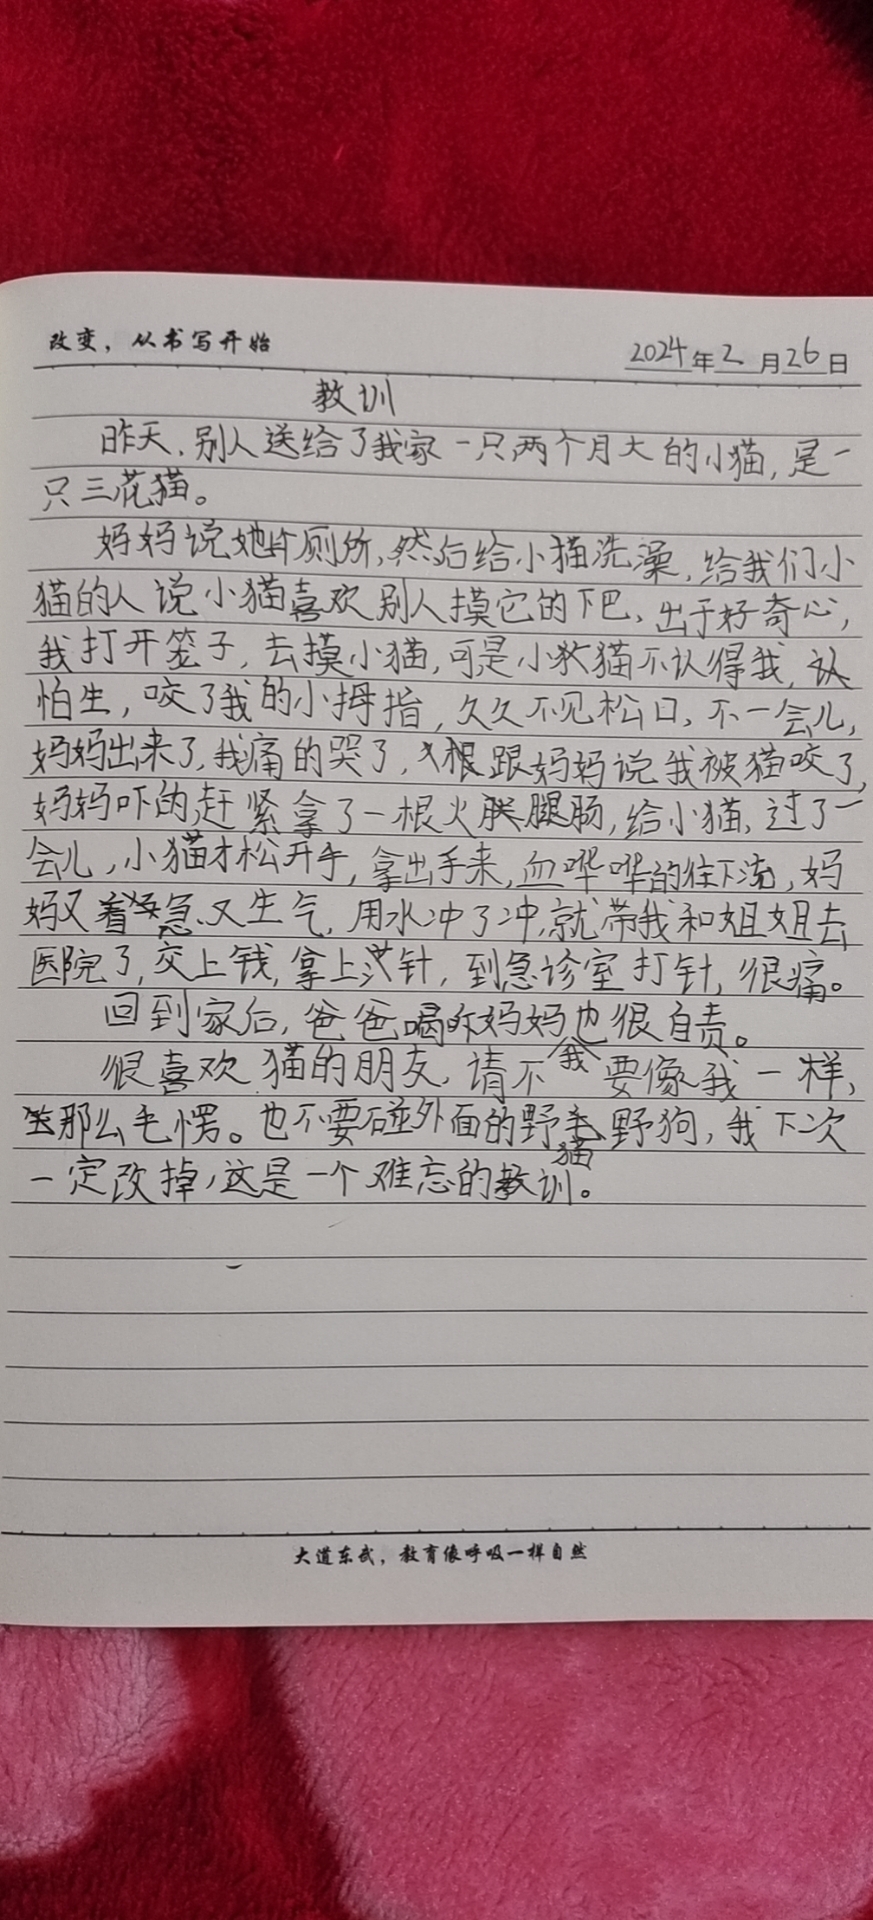 改变，从书写开始
2024年2月26日
教训
昨天，别人送给了我家一只两个月大的小猫，是一
只三花猫。
妈妈说她上厕所，然后给小猫洗澡，给我们小
猫的人说小猫喜欢别人摸它的下巴、出于好奇心，
我打开笼子，去摸小猫，可是小猫不认得我，
怕生，咬了我的小拇指，久久不见松口、不一会儿，
妈妈出来了，我痛的哭了，跟妈妈说我被猫咬了，
妈妈吓的，赶紧拿了一根火腿肠，给小猫，过了一
会儿，小猫才松开手，拿出手来，血哗哗的往下流，妈
妈又着急、又生气，用水冲了冲，就带我和姐姐去
医院了，交上钱，拿上针，到急诊室打针，很痛。
回到家后，爸爸喝妈妈也很自责。
很喜欢猫的朋友，请不要像我一样，
那么毛愣。也不要碰外面的野猫野狗，我下次
一定改掉，这是一个难忘的教训。
大道东武，教育像呼吸一样自然